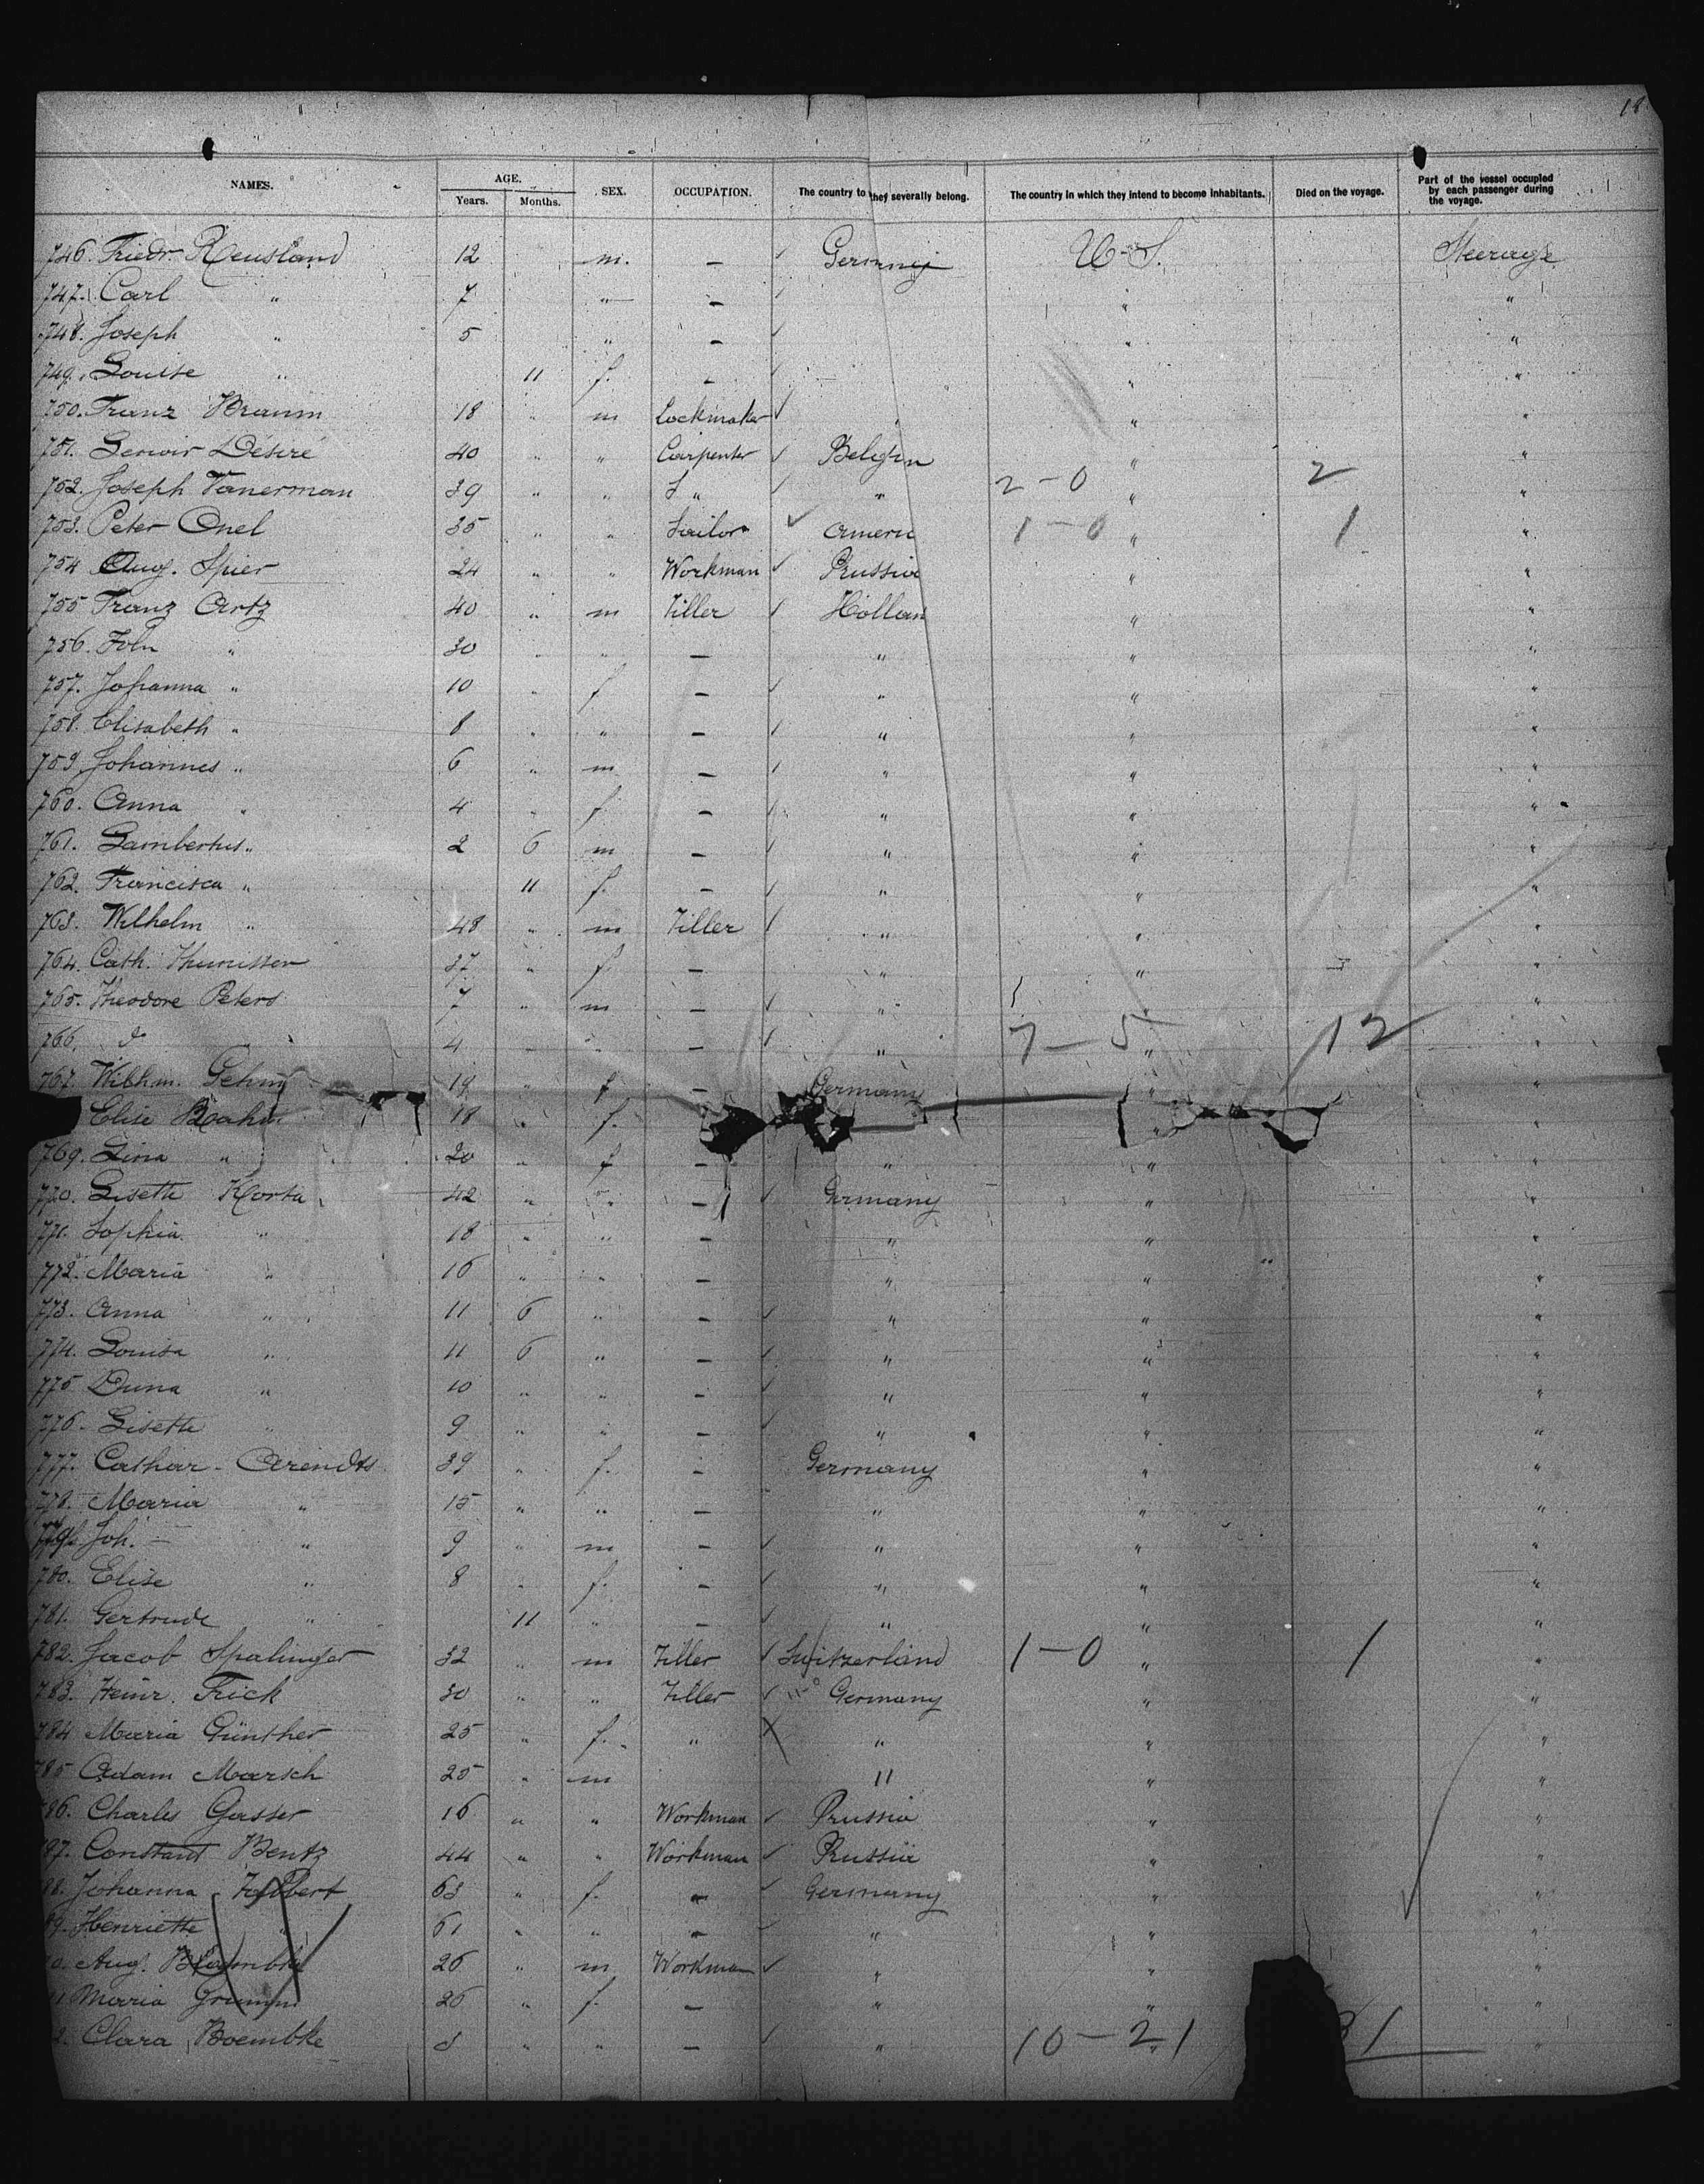 18
NAMES. AGE. Years. Months. SEX. OCCUPATION. The country to they severally belong. The country in which they intend to become inhabitants. Died on the voyage. Part of the vessel occupied by each passenger during the voyage.
746. Friedr. Reusland 12 m. — Germany U.S. Steerage
747. Carl " 7 " — " "
748. Joseph " 5 " — " "
749. Louise " 11 f. — " "
750. Franz Braum 18 " m Lockmaker " " "
751. Servoir Désiré 40 " " Carpenter Belgin " "
752. Joseph Vanerman 39 " " " " 2-0 " 2 "
753. Peter Onel 35 " " Sailor Ameri 1-0 " 1 "
754 Aug. Spier 24 " " Workman Prussia " "
755 Franz Artz 40 " m Tiller Hollan " "
756. John " 30 " " — " " "
757. Johanna " 10 " f — " " "
758. Elisabeth " 8 " " — " " "
759. Johannes " 6 " m — " " "
760. Anna " 4 " f — " " "
761. Lambertus " 2 6 m — " " "
762. Francisca " 11 f. — " " "
763. Wilhelm " 48 " m Tiller " " "
764. Cath. Thunissen 37 " f. — " " "
765. Theodore Peters 7 " m — " 1 "
766. d 4 — " — " 7-5 " 12 "
767. Wilh.m. Gehm 19 " f — Germany " "
Elise Rahn 18 " f. " "
769. Lina " 20 " f — " " "
770. Lisette Korta 42 " " — Germany " "
771. Sophia " 18 " " — " " "
772. Maria " 16 " " — " " "
773. Anna " 11 6 " — " " "
774. Louisa " 11 6 " — " " "
775 Duna " 10 " " — " " "
776. Lisette " 9 " " — " " "
777. Cathar. Arendts 39 " f. — Germany " "
778. Maria " 15 " " — " " "
779. Joh. — " 9 " m — " " "
780. Elise " 8 " f. — " " "
781. Gertrude " 11 " — " " "
782. Jacob Spalinger 32 " m Tiller Switzerland 1-0 " 1 "
783. Heinr. Frick 30 " " Tiller Germany " "
784 Maria Günther 25 " f. " X " " "
785 Adam Marsch 25 " m " " "
786. Charles Gasser 16 " " Workman Prussia " "
787. Constant Bentz 44 " " Workman Prussia " "
88. Johanna 63 " f. — Germany " "
89. Henriette " 61 " " — " " "
0. Aug. 26 " m Workman " " "
1 Maria Grumm 26 " f. — " " "
2. Clara Boembke 3 " " — " 10-21 31 "